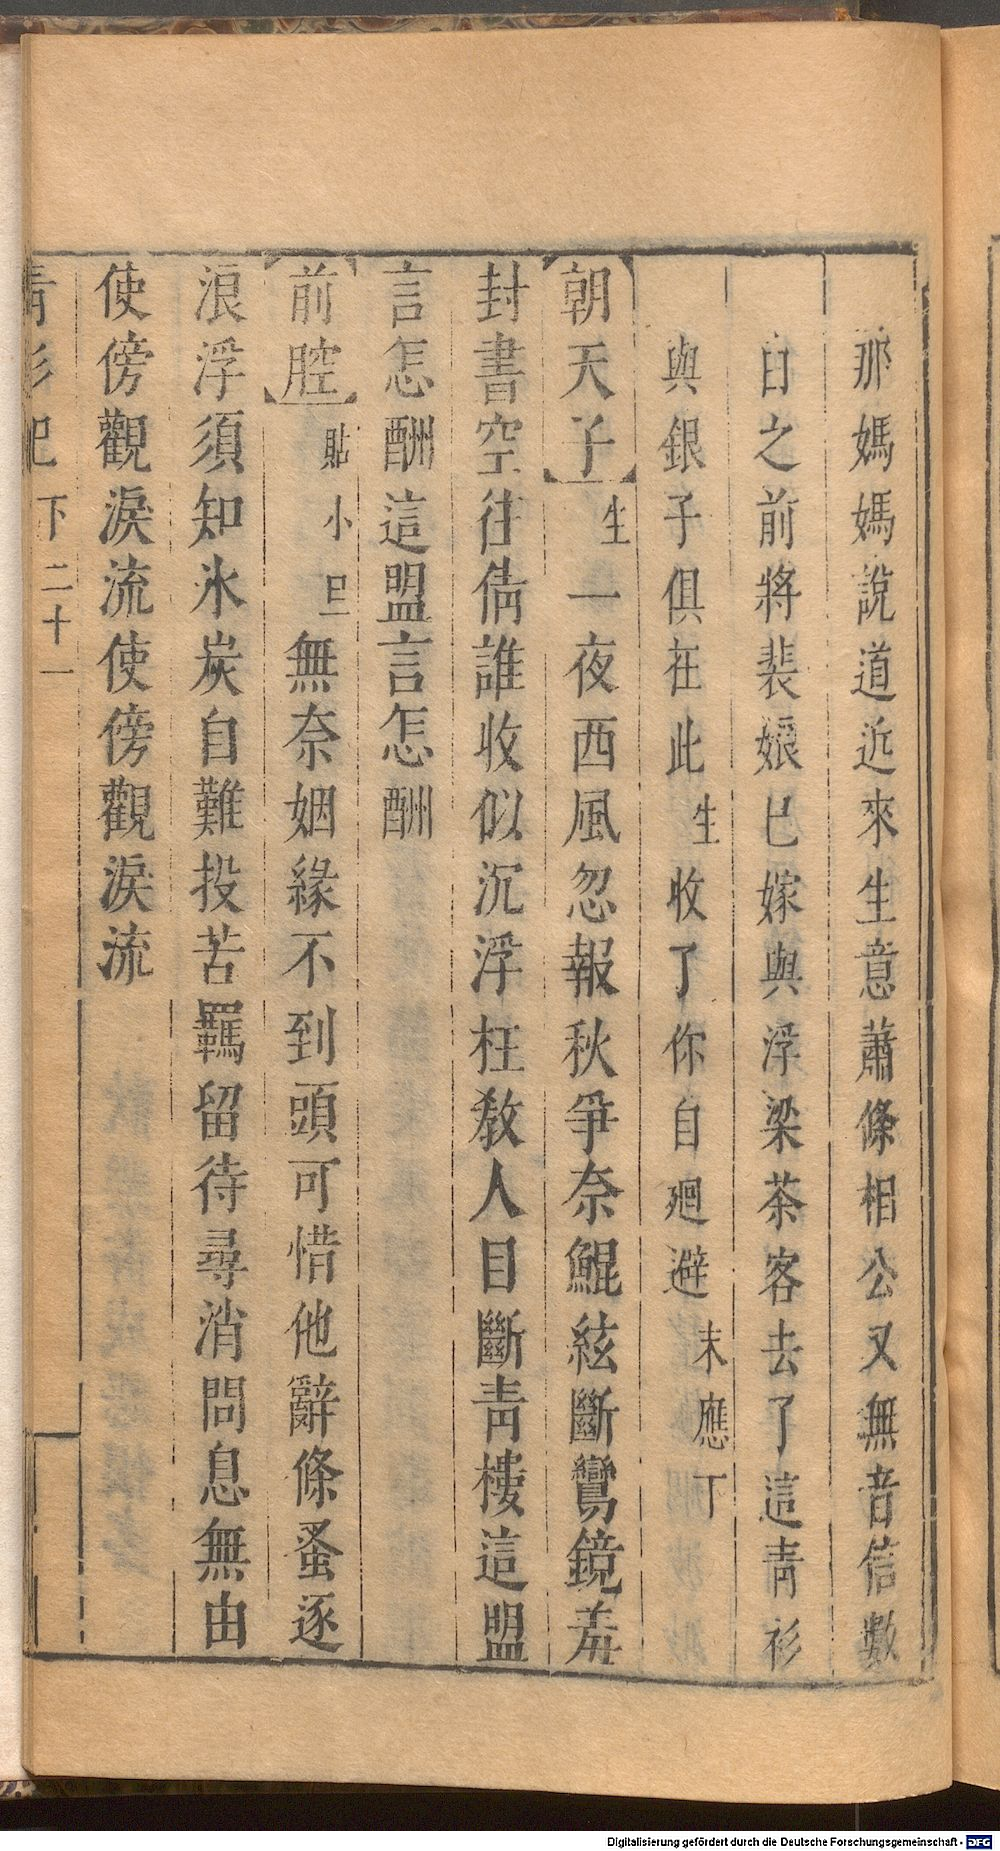 那媽媽說道近來生意蕭條相公又無音信數
日之前將裴娘已嫁與浮梁茶客去了這青衫
與銀子俱在此生收了你自廻避末應丁
朝天子生一夜西風忽報秋爭奈鯤絃斷鸞鏡羞
封書空往倩誰收似沉浮枉教人目斷青樓這盟
言怎酬這盟言怎酬
前腔貼小旦無奈姻緣不到頭可惜他辭條蚤逐
浪浮須知氷炭自難投苦羈留待尋消問息無由
使傍觀淚流使傍觀淚流
青衫記下二十一
Digitalisierung gefördert durch die Deutsche Forschungsgemeinschaft - DFG